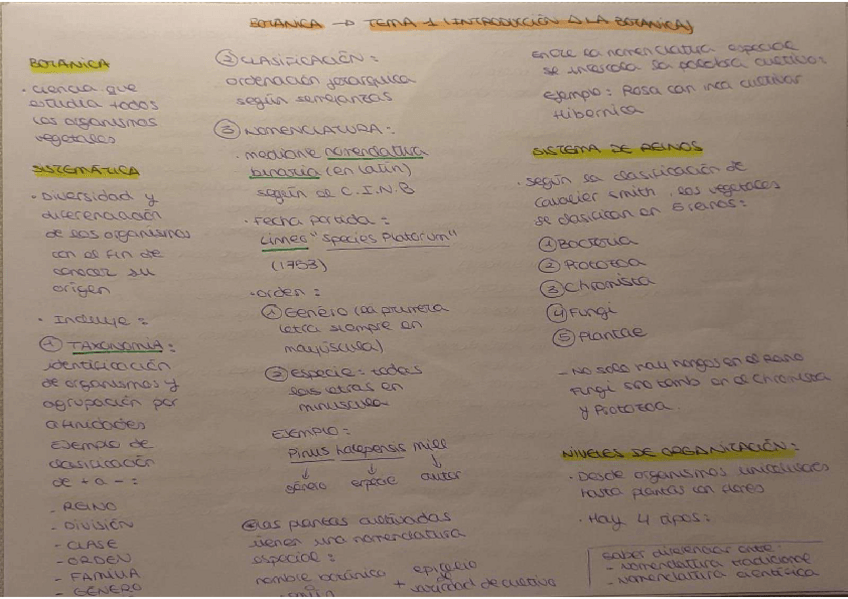 BOTÁNICA → TEMA 1 (INTRODUCCIÓN A LA BOTÁNICA)
BOTÁNICA
· ciencia que
estudia todos
los organismos
vegetales
SISTEMÁTICA
· Diversidad y
diferenciación
de los organismos
con el fin de
conocer su
origen
· Incluye:
① TAXONOMÍA:
identificación
de organismos y
agrupación por
afinidades
Ejemplo de
clasificación
de + a -:
- REINO
- DIVISIÓN
- CLASE
- ORDEN
- FAMILIA
- GÉNERO
② CLASIFICACIÓN:
ordenación jerárquica
según semejanzas
③ NOMENCLATURA:
· mediante nomenclatura
binaria (en latín)
según el C.I.N.B
· Fecha partida:
Linneo "Species Platarum"
(1753)
· orden:
① Género (la primera
letra siempre en
mayúscula)
② especie: todas
las letras en
minuscula
Ejemplo:
Pinus halepensis mill
↓ ↓ ↓
género especie autor
las plantas cultivadas
tienen una nomenclatura
especial:
nombre botánico + epigeio
variedad de cultivo
Entre la nomenclatura especial
se intercala la palabra cultivar
ejemplo: Rosa can ina cultivar
Hibernica
SISTEMA DE REINOS
· según la clasificación de
Cavalier Smith, los vegetales
se clasifican en 5 reinos:
① Bacteria
② Protozoa
③ Chromista
④ Fungi
⑤ Plantae
- No solo hay hongos en el Reino
Fungi sino tamb en el Chromista
y Protozoa.
NIVELES DE ORGANIZACIÓN:
· Desde organismos unicelulares
hasta plantas con flores
· Hay 4 tipos:
saber diferenciar entre:
- Nomenclatura tradicional
- Nomenclatura científica